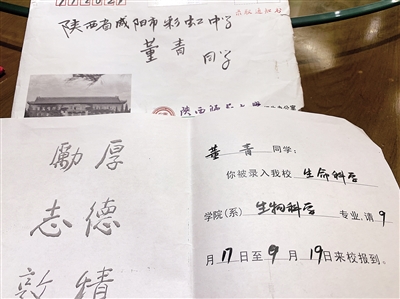 712021
陕西省咸阳市彩虹中学
董青 同学
陕西师范大学
董青 同学:
你被录入我校 生命科学
学院(系) 生物科学 专业.请 9
月 17 日至 9 月 19 日来校报到.
厚德
励志
敦
精